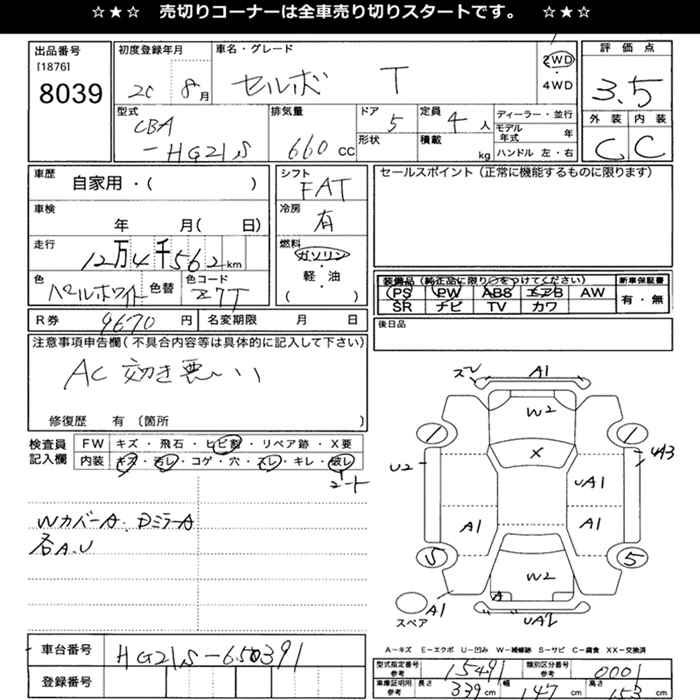 ☆★☆ 売切りコーナーは全車売り切りスタートです。 ☆★☆
出品番号 初度登録年月 車名・グレード 評価点
[1876]
8039 20 8月 セルボ T 2WD 3.5
4WD
外装 内装
型式 排気量 ドア 5 定員 4人 ディーラー・並行 C C
CBA モデル年式 年
-HG21S 660cc 形状 積載 kg ハンドル 左・右
車歴 自家用・( ) シフト FAT セールスポイント(正常に機能するものに限ります)
車検 年 月( 日) 冷房 有
走行 12万4千562km 燃料 ガソリン
軽・油
( )
色 パールホワイト 色替 色コード Z7T
装備品(純正品に限り○をつけてください) 新車保証書
PS PW ABS エアB AW 有・無
SR ナビ TV カワ
R券 9670円 名変期限 月 日 後日品
注意事項申告欄(不具合内容等は具体的に記入して下さい)
AC 効き悪い
修復歴 有〔箇所 〕
検査員記入欄 FW キズ・飛石・ヒビ割・リペア跡・X要
内装 キズ・汚レ・コゲ・穴・スレ・キレ・破レ
シート
WカバーA. DミラーA
各A.U
スレ A1
W2
X
U2
UA1
4A3
A1 A1
W2
A
A1 UA2
スペア
A-キズ E-エクボ U-凹み W-補修跡 S-サビ C-腐食 XX-交換済
車台番号 HG21S-650391
登録番号
型式指定番号 参考 15491 類別区分番号 参考 0001
車庫証明用 参考 長さ 339cm 幅 147cm 高さ 153cm